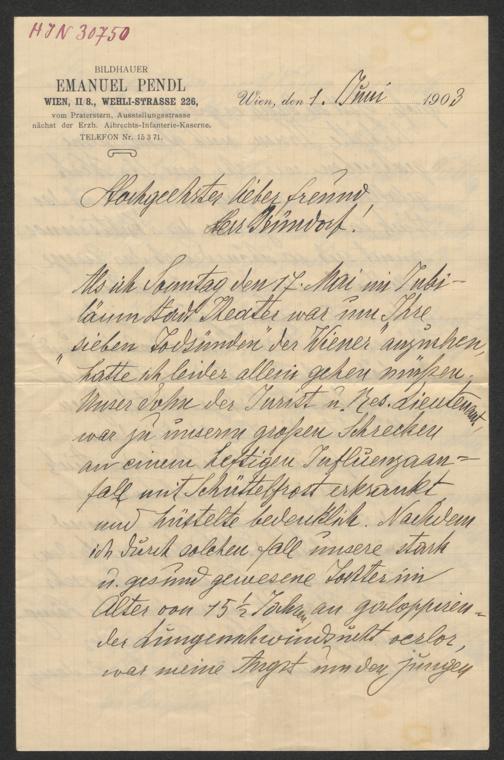 HJN 30750
BILDHAUER
EMANUEL PENDL
WIEN, II/8., WEHLI-STRASSE 226,
vom Praterstern, Ausstellungsstrasse
nächst der Erzh. Albrechts-Infanterie-Kaserne.
TELEFON Nr. 15371.
Wien, den 1. Juni 1903
Hochgeehrter lieber Freund
Herr
Als ich Sonntag den 17. Mai im Jubi-
läum Stadt Theater war um Ihre
"sieben Todsünden" der Wiener anzusehen,
hatte ich leider allein gehen müßen.
Unser Sohn der Jurist u. Res. Lieutenant,
war zu unserm großen Schrecken
an einem heftigen Influenzaan=
fall mit Schüttelfrost erkrankt
und hüstelte bedenklich. Nachdem
ich durch solchen Fall unsere stark
u. gesund gewesene Tochter im
Alter von 15½ Jahren an galoppiren=
der Lungenschwindsucht verlor,
war meine Angst um den jungen